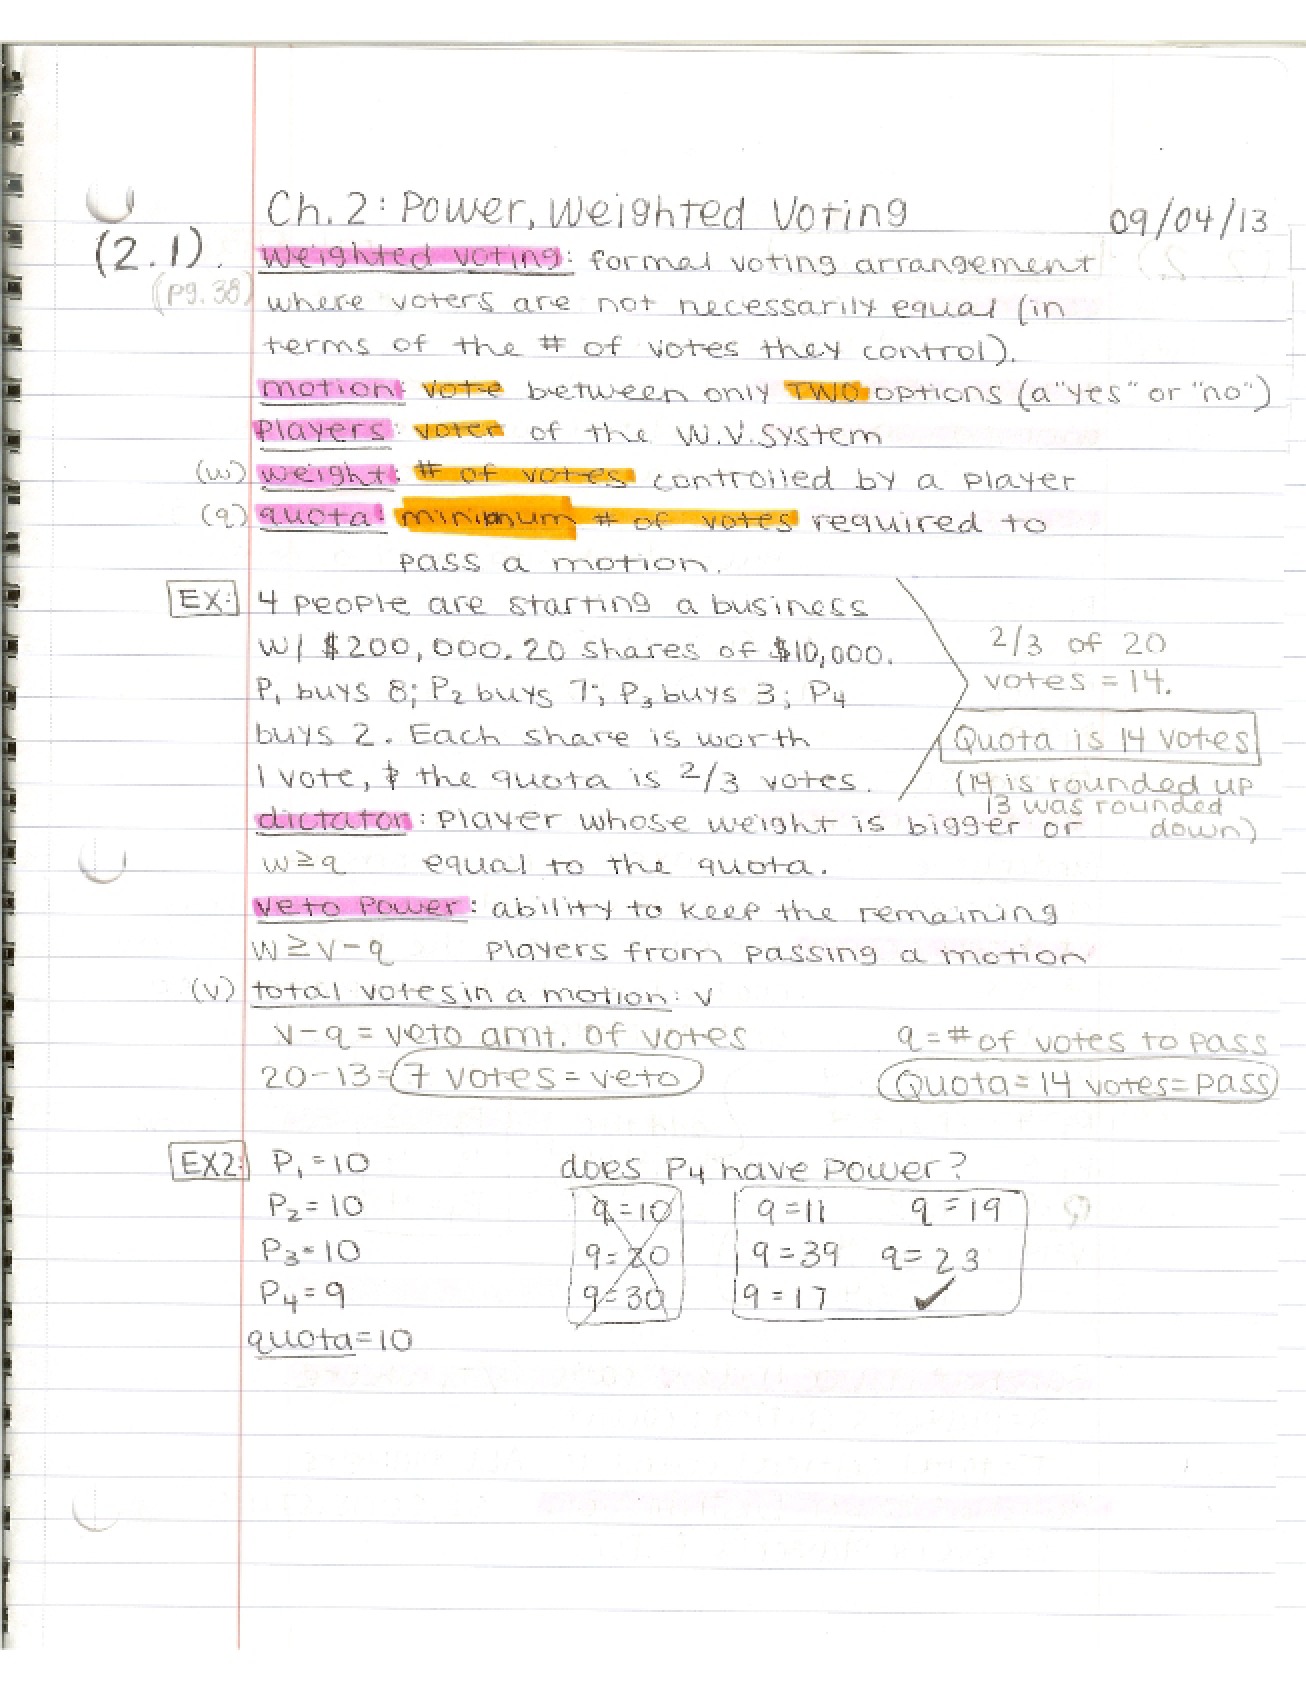 Ch. 2: Power, Weighted Voting 09/04/13
(2.1). weighted voting: formal voting arrangement
(pg. 38) where voters are not necessarily equal (in
terms of the # of votes they control).
motion: vote between only TWO options (a "yes" or "no")
players: voter of the W.V. System
(w) weight: # of votes controlled by a player
(q) quota: minimum # of votes required to
pass a motion.
EX: 4 people are starting a business
w/ $200,000. 20 shares of $10,000.
P₁ buys 8; P₂ buys 7; P₃ buys 3; P₄
buys 2. Each share is worth
1 vote, & the quota is 2/3 votes.
2/3 of 20
votes = 14.
Quota is 14 votes
(14 is rounded up
13 was rounded
down)
dictator: player whose weight is bigger or
w ≥ q equal to the quota.
veto power: ability to keep the remaining
w ≥ v - q players from passing a motion
(v) total votes in a motion: v
v - q = veto amt. of votes q = # of votes to pass
20 - 13 = 7 votes = veto Quota = 14 votes = pass
EX2: P₁ = 10 does P₄ have power?
P₂ = 10 q = 10 q = 11 q = 19
P₃ = 10 q = 20 q = 39 q = 23
P₄ = 9 q = 30 q = 17 ✓
quota = 10